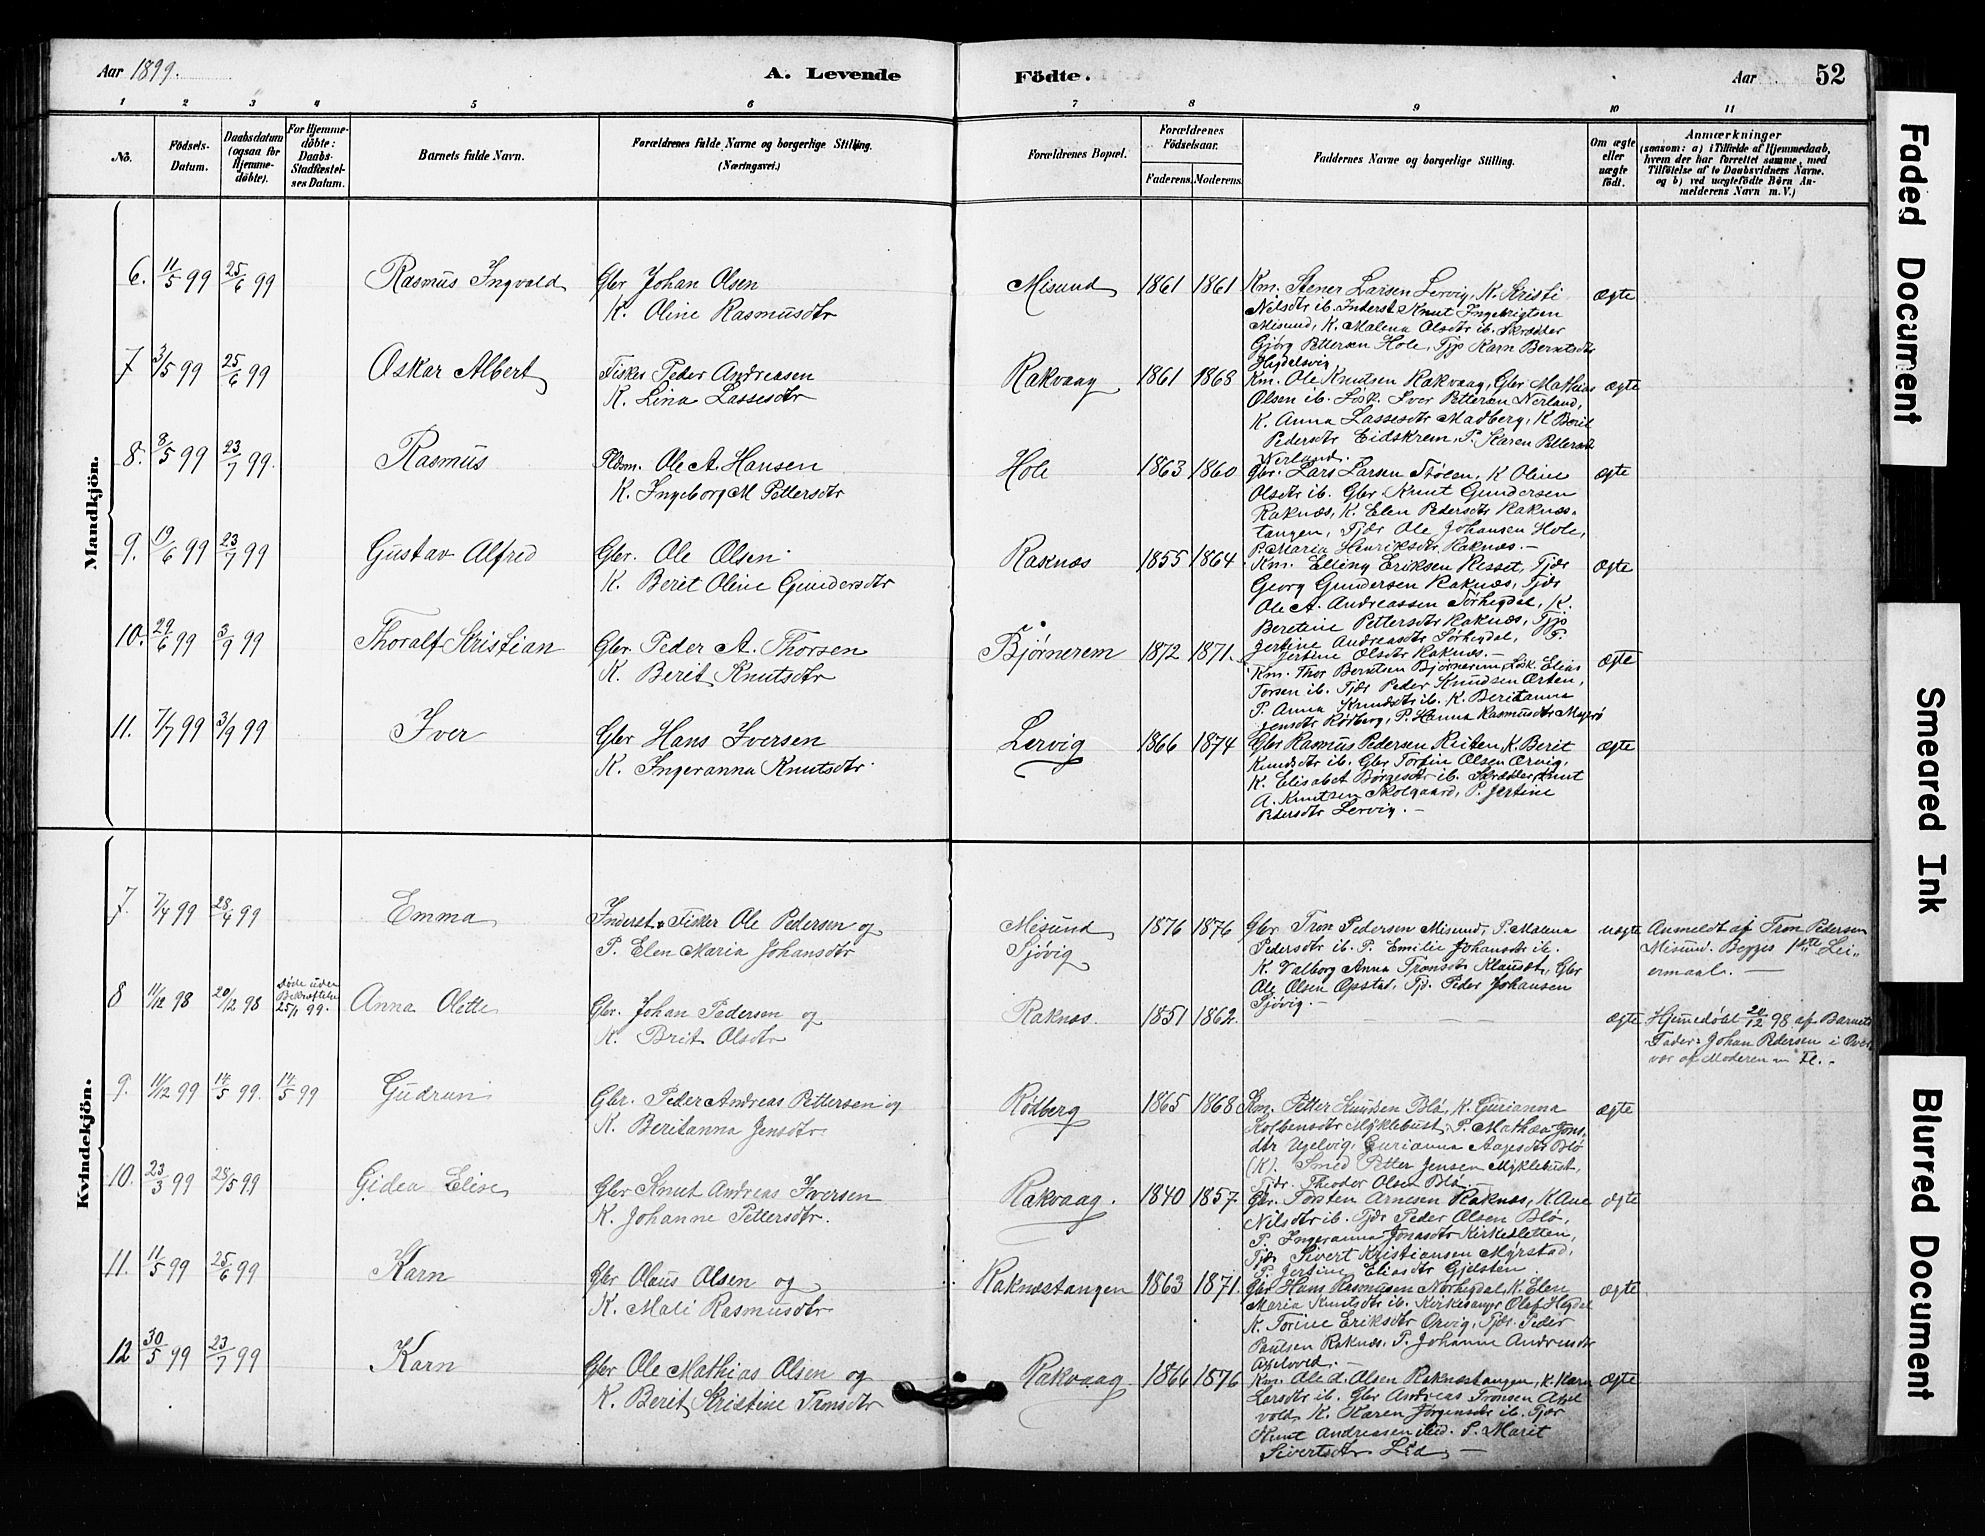 Aar 1899. A. Levende Födte. Aar 52
1 2 3 4 5 6 7 8 9 10 11
No.
Födsels-
Datum.
Daabsdatum
(ogsaa for
Hjemme-
döbte).
For Hjemme-
döbte:
Daabs-
Stadfæstel-
ses Datum.
Barnets fulde Navn.
Forældrenes fulde Navne og borgerlige Stilling.
(Næringsvei.)
Forældrenes Bopæl.
Forældrenes
Födselsaar.
Faderens. Moderens.
Faddernes Navne og borgerlige Stilling.
Om ægte
eller
uægte
födt.
Anmærkninger
(saasom: a) i Tilfælde af Hjemmedaab,
hvem der har forrettet samme, med
Tilföielse af to Daabsvidners Navne.
og b) ved uægtefödte Börn An-
melderens Navn m. V.)
Mandkjön.
6. 11/5 99 25/6 99 Rasmus Ingvald
Gbr Johan Olsen
K. Oline Rasmusdtr
Misund 1861 1861
Km. Stener Larsen Lervig, K. Kristi
Nilsdtr ib. Inderst Knut Ingebrigtsen
Misund, K. Malena Olsdtr ib. Skrædder
Gjörg Pettersen Hole, Tjp Karn Berntsdtr
Hegdelsvig
ægte
7 3/5 99 25/6 99 Oskar Albert
Fisker Peder Andreasen
K. Lina Lassesdtr
Rakvaag 1861 1868
Km. Ole Knutsen Rakvaag, Gbr Mathias
Olsen ib. Løsk. Iver Pettersen Nerland,
K. Anna Lassesdtr Madberg, K Berit
Pedersdtr Eidskrem, P. Karen Pettersdtr
Nerland.
ægte
8. 8/5 99 23/7 99. Rasmus
Pldsm. Ole A. Hansen
K. Ingeborg M Pettersdtr
Hole 1863 1860
Gbr. Lars Larsen Stölen, K Oline
Olsdtr ib. Gbr Knut Gundersen
Raknæs, K. Elen Pedersdtr Raknæs-
tangen, Tjdr Ole Johansen Hole,
P. Maria Henriksdtr Raknæs.-
ægte
9. 19/6 99 23/7 99 Gustav Alfred
Gbr. Ole Olsen
K. Beret Oline Gundersdtr
Raknæs 1855 1864
Km. Elling Eriksen Risset, Tjdr
Georg Gundersen Raknæs, Tjdr
Ole A. Andreassen Sörhegdal, K.
Beretine Pettersdtr Raknæs, Tjp
Jertine Andreasdtr Sörhegdal, P.
Jertine Olsdtr Raknæs.-
ægte
10. 29/6 99 3/9 99 Thoralf Kristian
Gbr. Peder A. Thorsen
K. Berit Knutsdtr
Bjørnerem 1872 1871.
Km. Thor Berntsen Bjørnerem, Løsk. Elias
Torsen ib. Tjdr Peder Knudsen Orten,
P. Anna Knudsdtr ib. K. Beritanna
Jensdtr Rödberg, P. Hanna Rasmusdtr Magerö
ægte
11. 7/7 99 3/9 99 Iver
Gbr Hans Iversen
K. Ingeranna Knutsdtr
Lervig 1866 1874
Gbr Rasmus Pedersen Reiten, K. Berit
Knudsdtr ib. Gbr Torfin Olsen Orvig,
K. Elisabet Børgesdtr ib. Skrædder Knut
A. Knutsen Skolgaard, P. Jertine
Pedersdtr Lervig.-
ægte
Kvindekjön.
7. 7/4 99 28/4 99 Emma
Inderst & Fisker Ole Pedersen og
P. Elen Maria Johansdtr
Misund
Sjövig
1876 1876
Gbr Tron Pedersen Misund, P. Malena
Pedersdtr ib. P. Emilie Johansdtr ib.
K. Valborg Anna Tronsdtr Klauset, Gbr
Ole Olsen Opstad, Tjd. Peder Johansen
Sjövig.-
uægte
Anmeldt af Tron Pedersen
Misund. Begges 1ste Lei-
ermaal.-
8 11/12 98 20/12 98 døde uden
Bekræftelse
25/1 99. Anna Olette
Gbr. Johan Pedersen og
K. Brit Olsdtr
Raknæs. 1851 1862.
ægte
Hjemedøbt 20/12 98 af Barnets
Fader Johan Pedersen i Over-
vær af Moderen
9. 11/12 99 14/5 99. 14/5 99 Gudrun
Gbr. Peder Andreas Pettersen og
K. Beritanna Jensdtr
Rödberg 1865 1868
Km. Petter Knudsen Blö, K. Gurianna
Kolbensdtr Myklebust, P. Mathea Jons-
dtr Ugelvig, Gurianna Aagesdtr Blö
(K). Smed Petter Jensen Myklebust,
Tjdr. Theodor Olsen Blö.-
ægte
10. 23/3 99 28/5 99 Gidea Elise
Gbr Knut Andreas Iversen
K. Johanne Pettersdtr.
Rakvaag. 1840 1857
Gbr. Torsten Arnesen Raknæs, K. Ane
Nilsdtr ib. Tjdr Peder Olsen Blö,
P. Ingeranna Jonasdtr Kirkesletten,
Tjdr Sivert Kristiansen Myrstad,
P. Jertine Eliasdtr Gjelsten
ægte
11. 11/5 99 25/6 99 Karn
Gbr Olaus Olsen og
K. Mali Rasmusdtr
Raknæstangen 1863 1871.
Gbr Hans Rasmusen Nörhegdal, K. Elen
Maria Knutsdtr ib. Kirkesanger Olaf Hegdal
K. Torine Eriksdtr Orvig, Tjdr. Peder
Paulsen Raknæs. P. Johanne Andreasdtr
Axelvold.-
ægte
12 30/5 99 23/7 99 Karn
Gbr Ole Mathias Olsen og
K. Berit Kristine Tronsdtr
Rakvaag 1866 1876
Km. Ole A. Olsen Raknæstangen, K. Karn
Larsdtr ib. Gbr Andreas Tronsen Axel
vold, K. Karen Jørgensdtr ib. Tjdr
Knut Andreassen Lid. P. Marit
Sivertsdtr Lid.-
ægte
Faded Document
Smeared Ink
Blurred Document